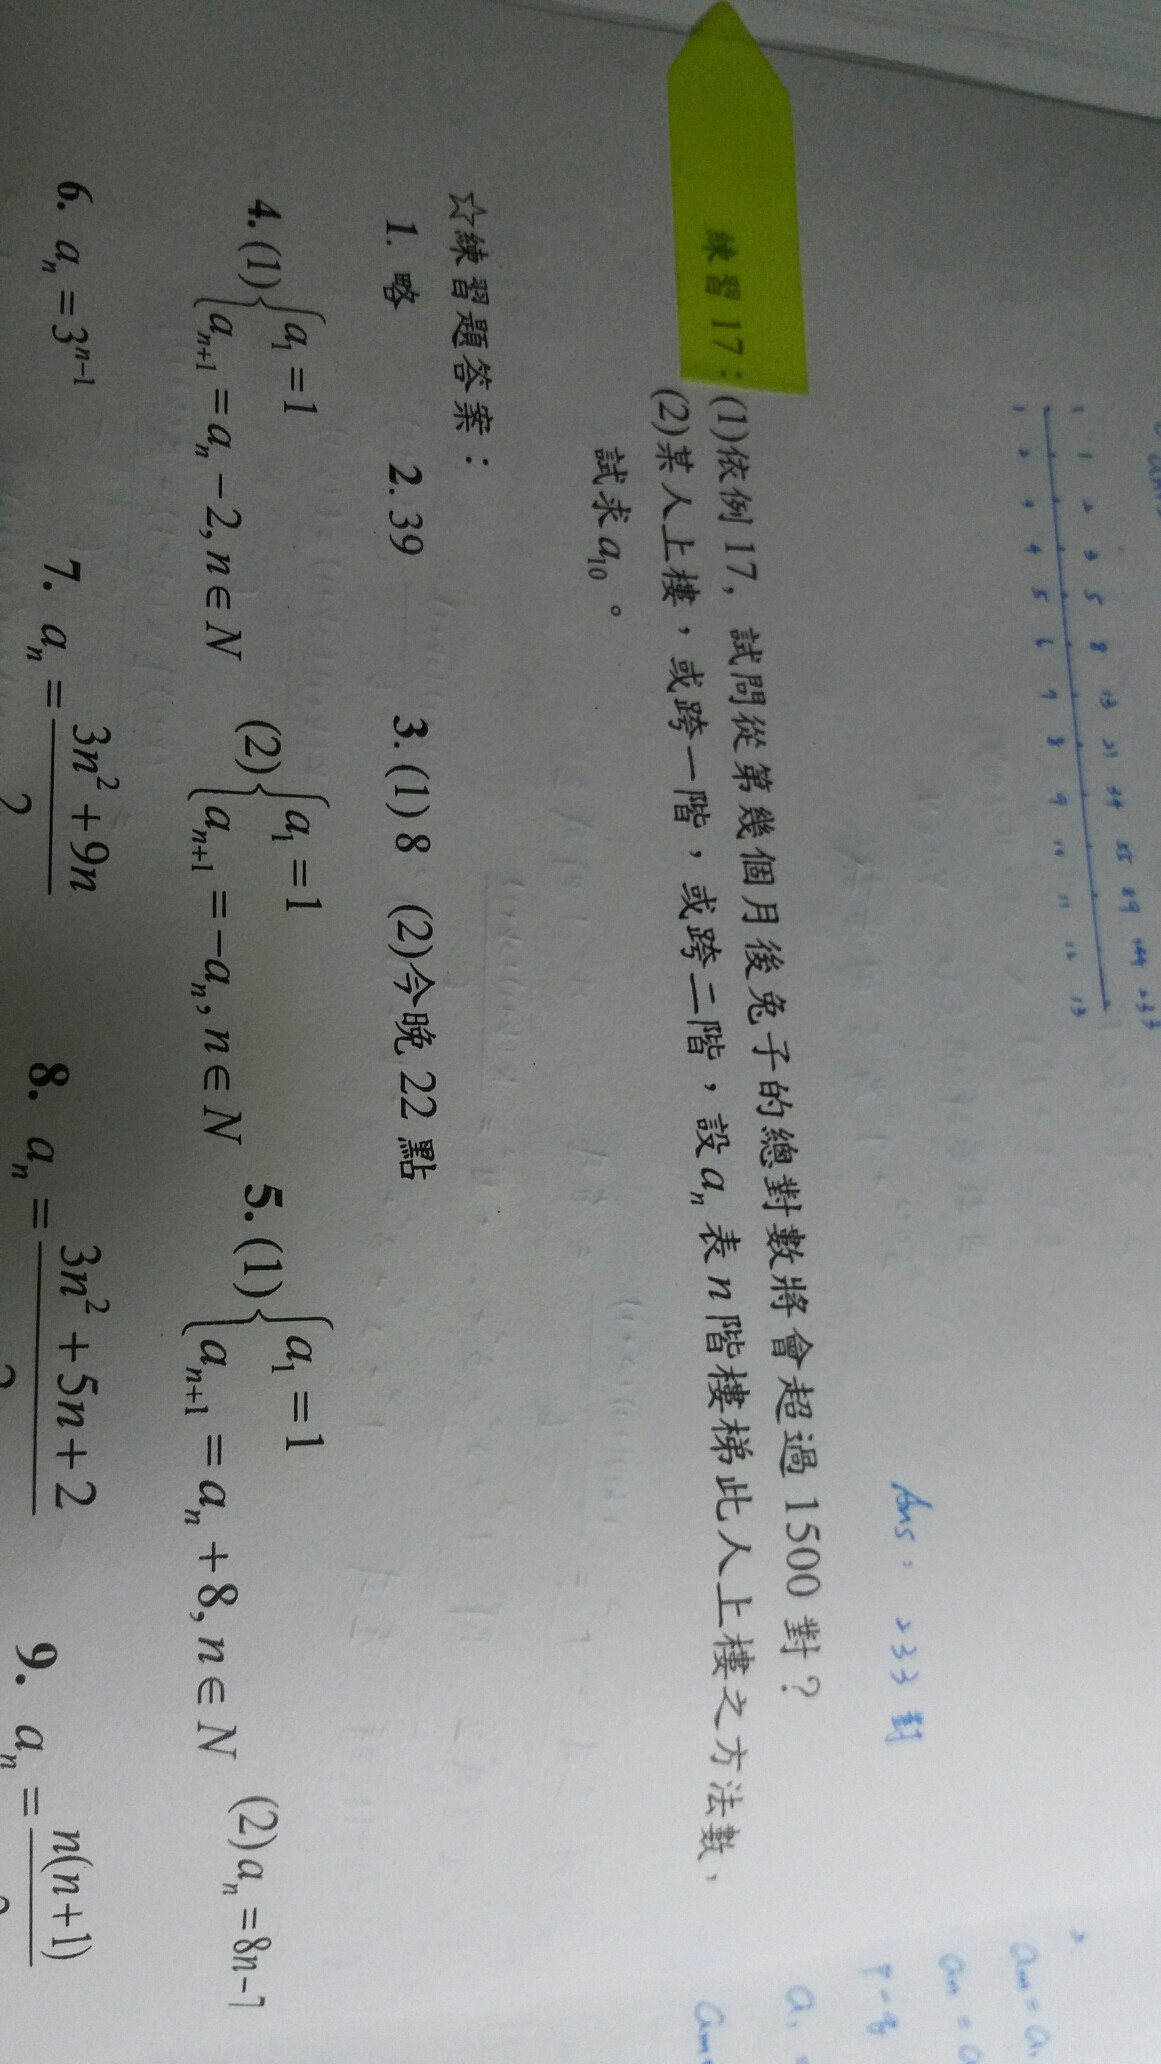 1 1 2 3 5 8 13 21 34 55 89 144 233
1 2 3 4 5 6 7 8 9 10 11 12 13
Ans: 233對
練習17：(1)依例17，試問從第幾個月後兔子的總對數將會超過1500對？
(2)某人上樓，或跨一階，或跨二階，設aₙ表n階樓梯此人上樓之方法數，
試求a₁₀。
☆練習題答案：
1. 略 2. 39 3. (1) 8 (2)今晚22點
4. (1) { a₁ = 1 aₙ₊₁ = aₙ − 2, n ∈ N (2) { a₁ = 1 aₙ₊₁ = −aₙ, n ∈ N 5. (1) { a₁ = 1 aₙ₊₁ = aₙ + 8, n ∈ N (2) aₙ = 8n−7
6. aₙ = 3ⁿ⁻¹ 7. aₙ = (3n² + 9n)/2 8. aₙ = (3n² + 5n + 2)/2 9. aₙ = n(n+1)/2